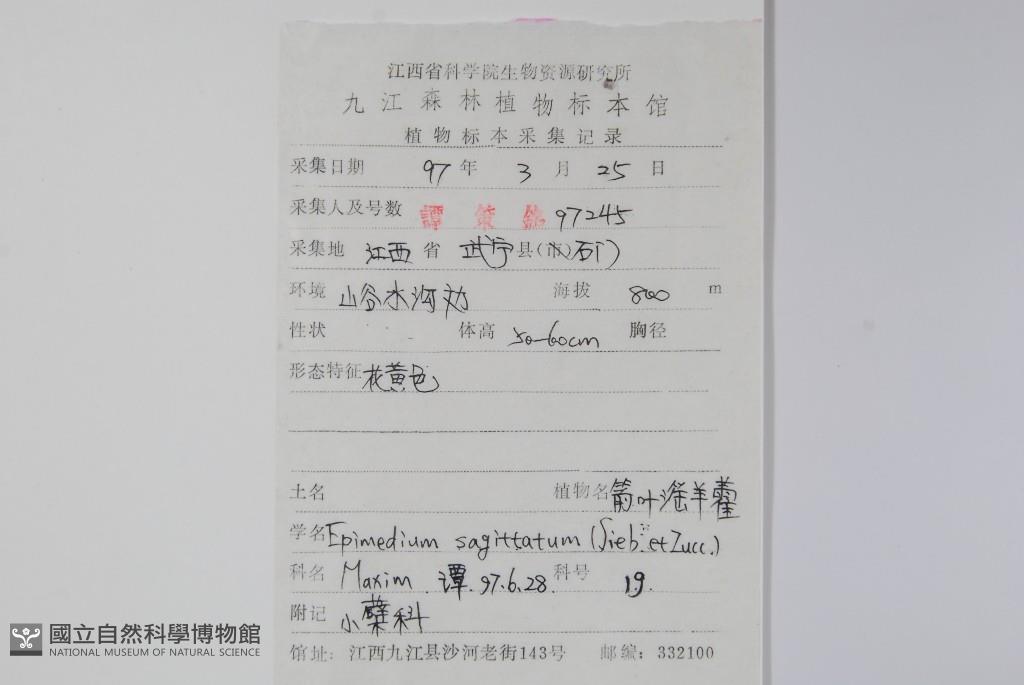 江西省科学院生物资源研究所
九江森林植物标本馆
植物标本采集记录
采集日期 97 年 3 月 25 日
采集人及号数 譚策銘 97245
采集地 江西 省 武宁 县(市)石门
环境 山谷水沟边 海拔 800 m
性状 体高 50-60cm 胸径
形态特征 花黄色
土名 植物名 箭叶淫羊藿
学名 Epimedium sagittatum (Sieb. et Zucc.)
科名 Maxim 谭. 97.6.28. 科号 19.
附记 小檗科
馆址: 江西九江县沙河老街143号 邮编: 332100
國立自然科學博物館
NATIONAL MUSEUM OF NATURAL SCIENCE